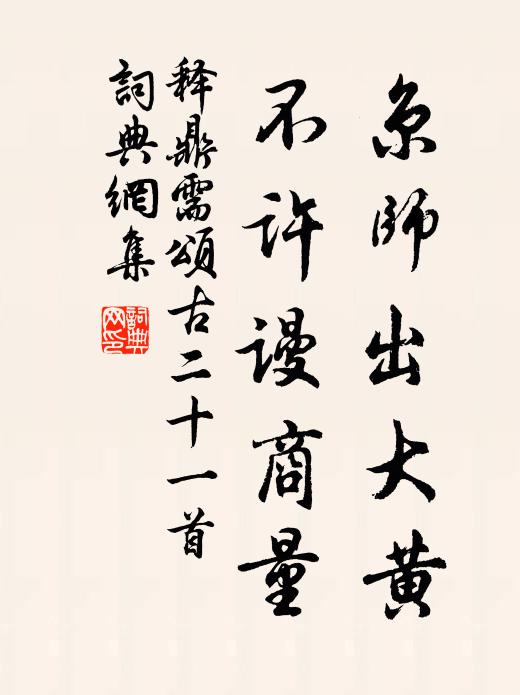 京師出大黄
不許謾商量
释鼎需頌古二十一首
詞典網集
詞典网印